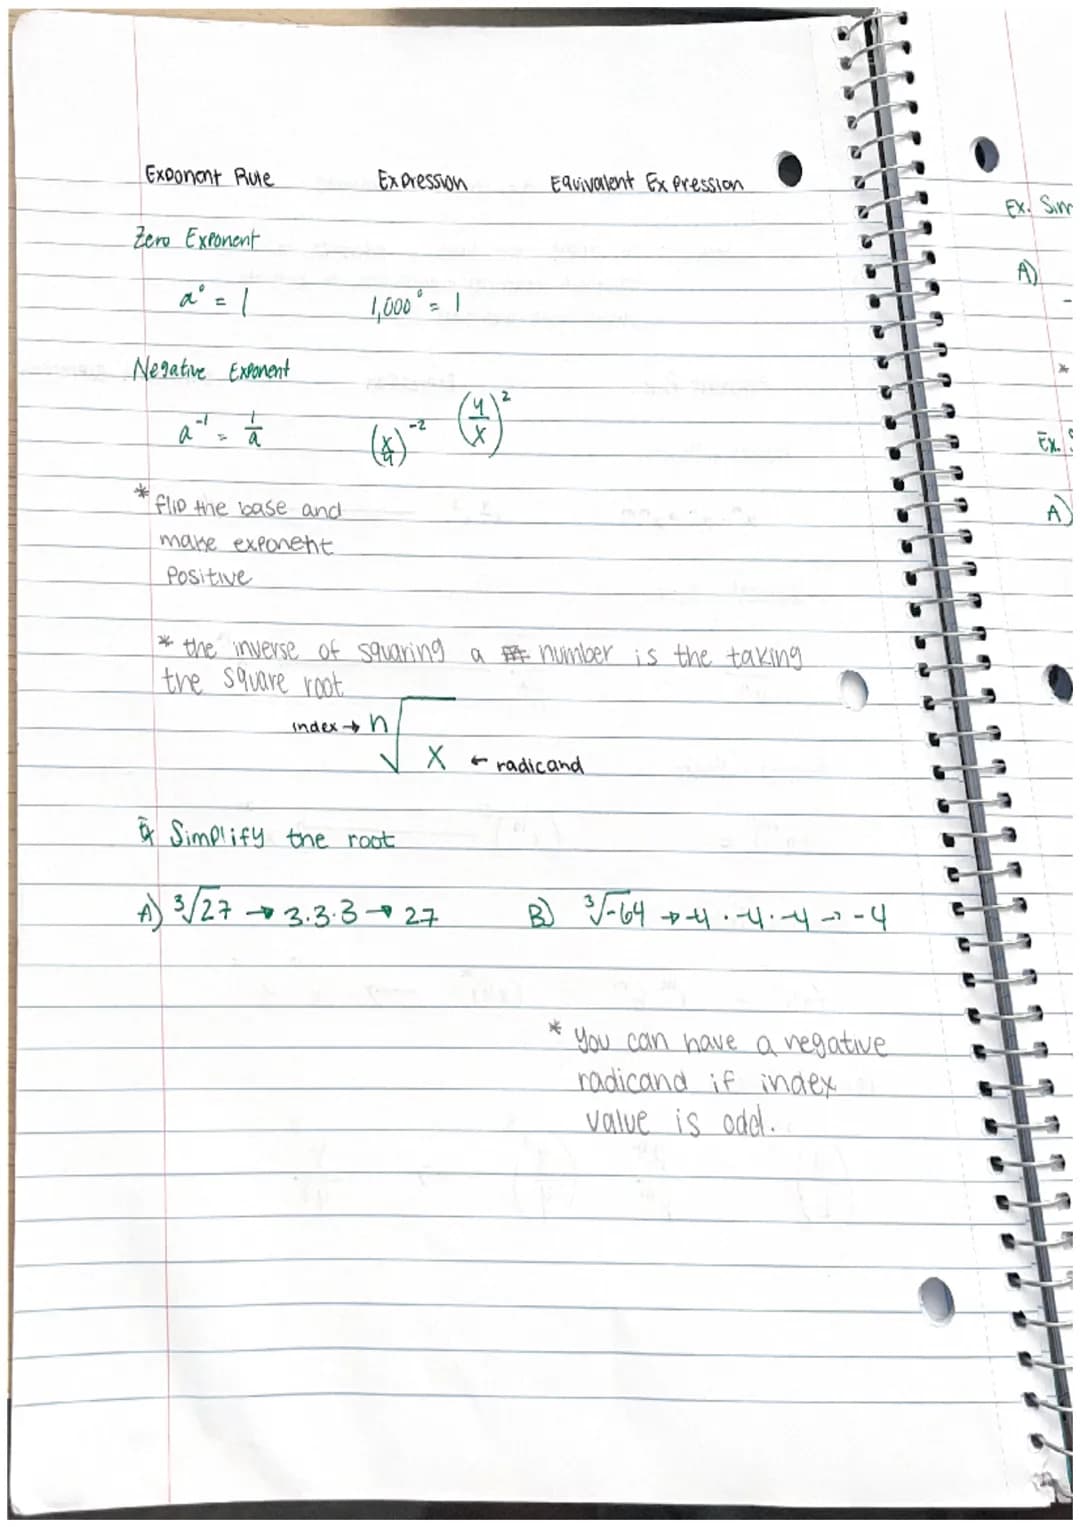 Exponent Rule Expression Equivalent Expression
Zero Exponent
a⁰ = 1 1,000⁰ = 1
Negative Exponent
a⁻¹ = 1/a (x/4)⁻² (4/x)²
* flip the base and
make exponent
Positive
* the inverse of squaring a number is the taking
the square root
index → n√x ← radicand
Ex Simplify the root
A) ³√27 → 3.3.3 → 27 B) ³√-64 → -4 · -4 · -4 → -4
* You can have a negative
radicand if index
value is odd.
Ex. Sim
A)
-
*
Ex. S
A)